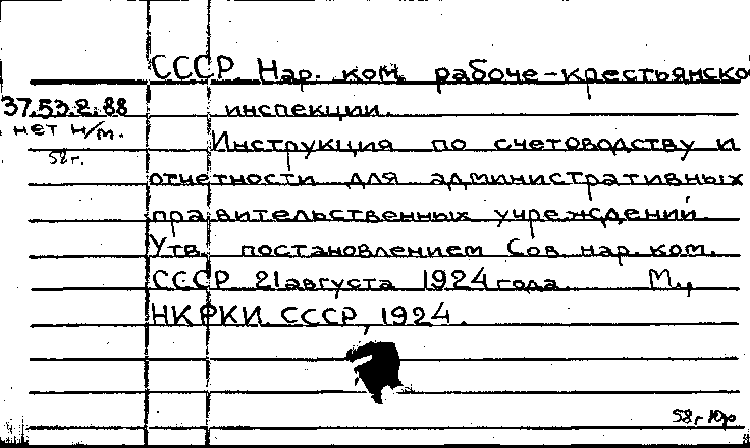 СССР. Нар. ком. рабоче-крестьянско
37.53.2.88
инспекции.
нет н/т.
Инструкция по счетоводству и
58 г.
отчетности для административных
правительственных учреждений.
Утв. постановлением Сов. нар. ком.
СССР 21 августа 1924 года. М.,
НК РКИ СССР, 1924.
58 г